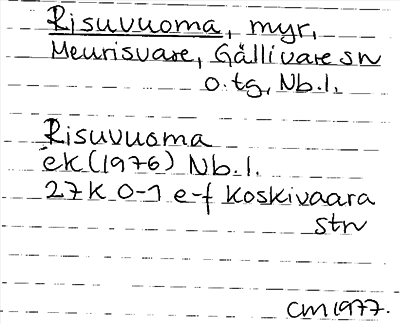 Risuvuoma, myr,
Meurisvare, Gällivare sn
o. tg, Nb. l.
Risuvuoma
ek (1976) Nb. l.
27K 0-1 e-f Koskivaara
stn
CM 1977.